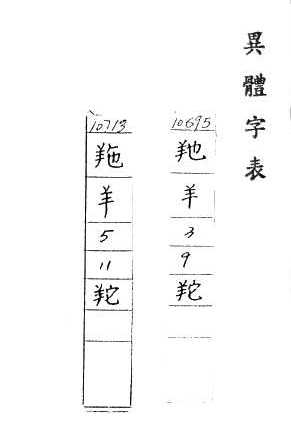 異體字表
10695
羊
3
9
10713
羊
5
11